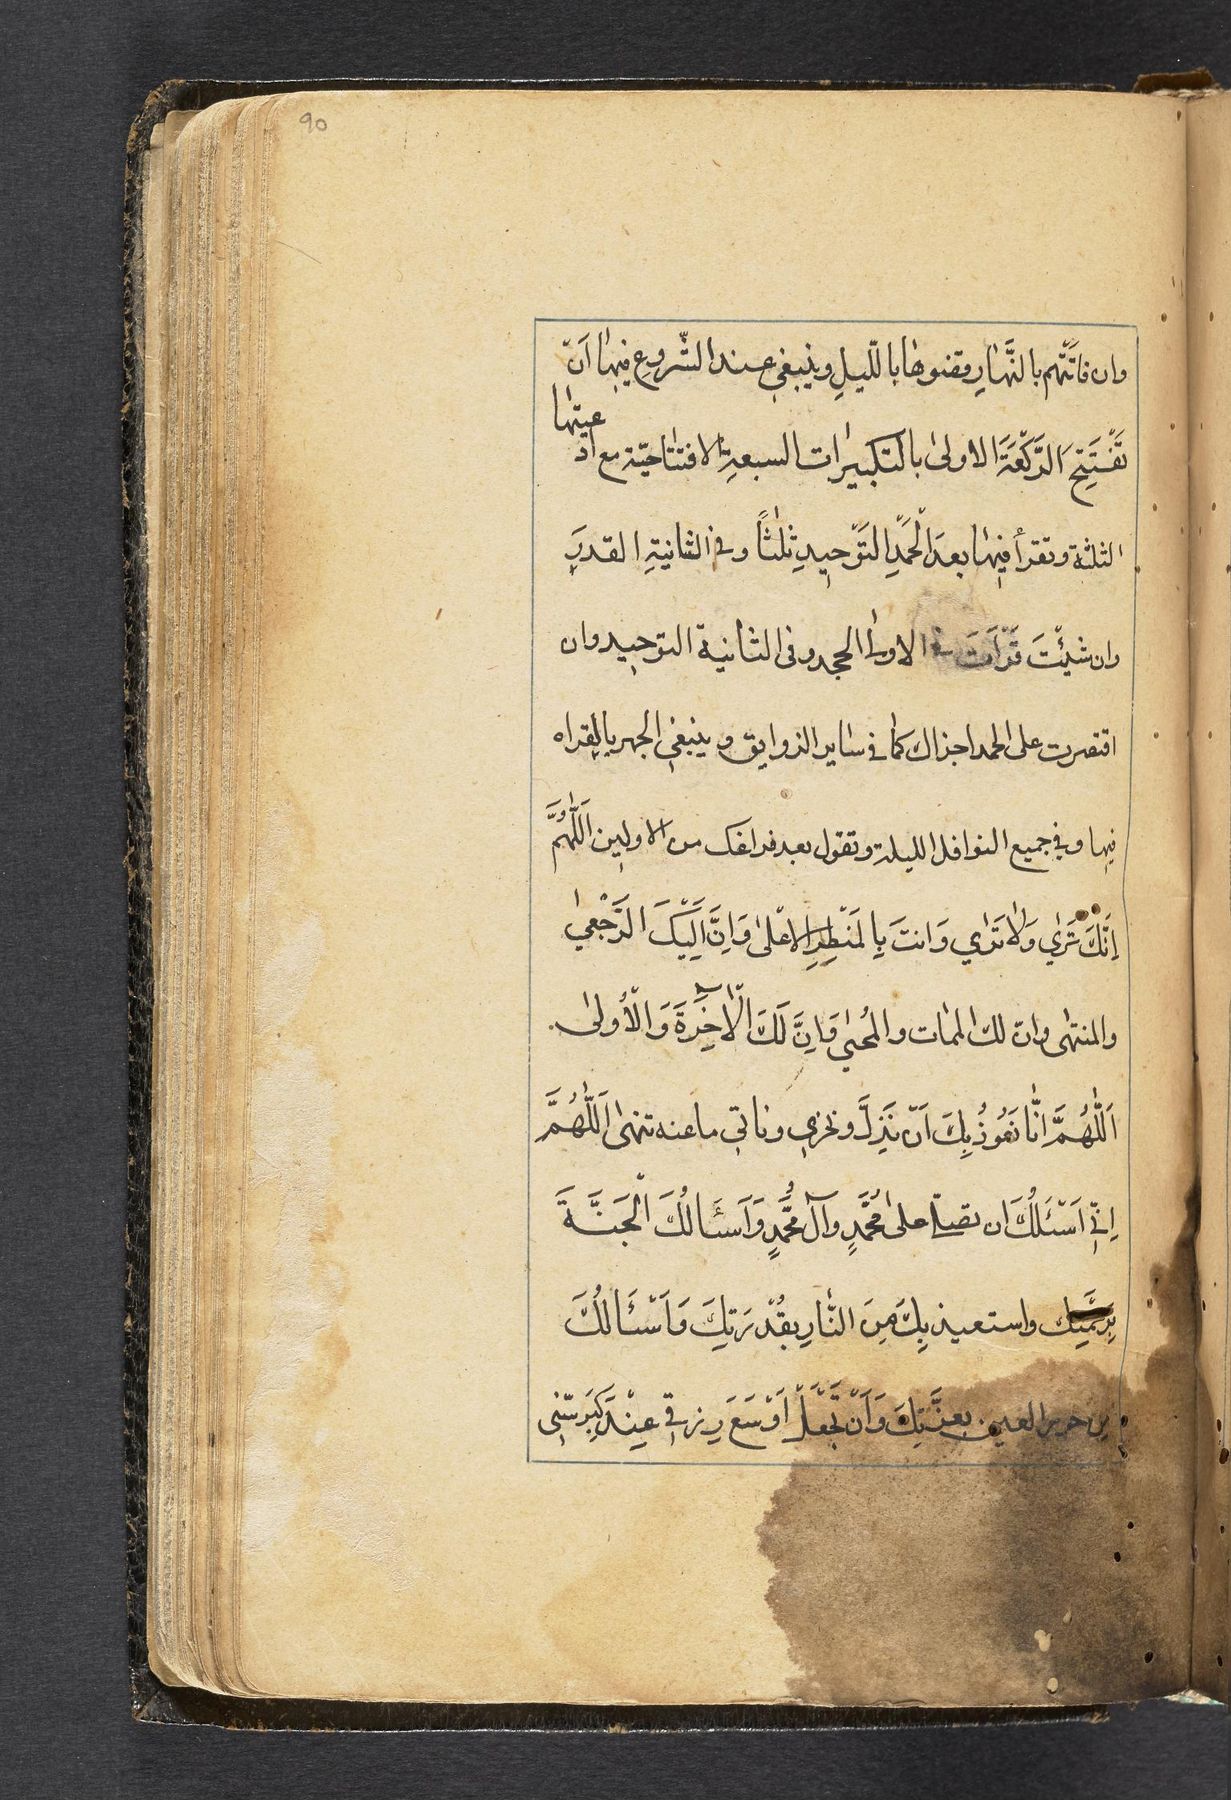 90
وان فاتَتْهم بالنَّهارِ وقضوها بالّليلِ وينبغى عند الشّروع فيها اَنْ
تَفْتَتِحَ الرَّكْعَةَ الاولىٰ بالتكبيرات السبعةِ الافتتاحيّة مع ادعيتها
الثلثة وتقرأ فيها بعدَ الْحَمْدِ التَوْحيدِ ثلٰثاً وفى الثانيةِ القدرَ
وان شئْتَ قَرَاْتَ فى الاولى الجحد وفى الثانية التوحيد وان
اقتصرت على الحمد اجزاك كما فى ساير الرواتب وينبغى الجهر بالقراه
فيها وفى جميع النوافل الليلية وتقول بعد فراغك من الاوليين اَللّٰهُمَّ
اِنَّكَ تَرٰي وَلاٰ تُرٰي وَانتَ بِالمَنْظَرِ الاَعْلىٰ وَاِنَّ اِلَيْكَ الرَّجْعىٰ
والمنتهى وان لك الممات والمحيٰي وَاِنَّ لَكَ الْاٰخِرَةَ وَالْاُولىٰ
اَللّٰهُمَّ انّٰا نَعُوذُ بِكَ اَنْ نَذِلَّ ونخزي وناتي ما عنه تنهىٰ اَللّٰهُمَّ
اِنّى اَسْئَلُكَ ان تصلى علىٰ مُحَمَّدٍ وآلِ مُحَمَّدٍ وَاَسْئَالُكَ الْجَنَّةَ
بِرَحْمَتِك واستعيذ بِكَ مِنَ النّٰارِ بِقُدْرَتِكَ وَاَسْئَالُكَ
من حور العين بعزَّتِكَ وَاَنْ تَجْعَلَ اَوْسَعَ رِزقي عِنْدَ كِبَرِ سِنّى